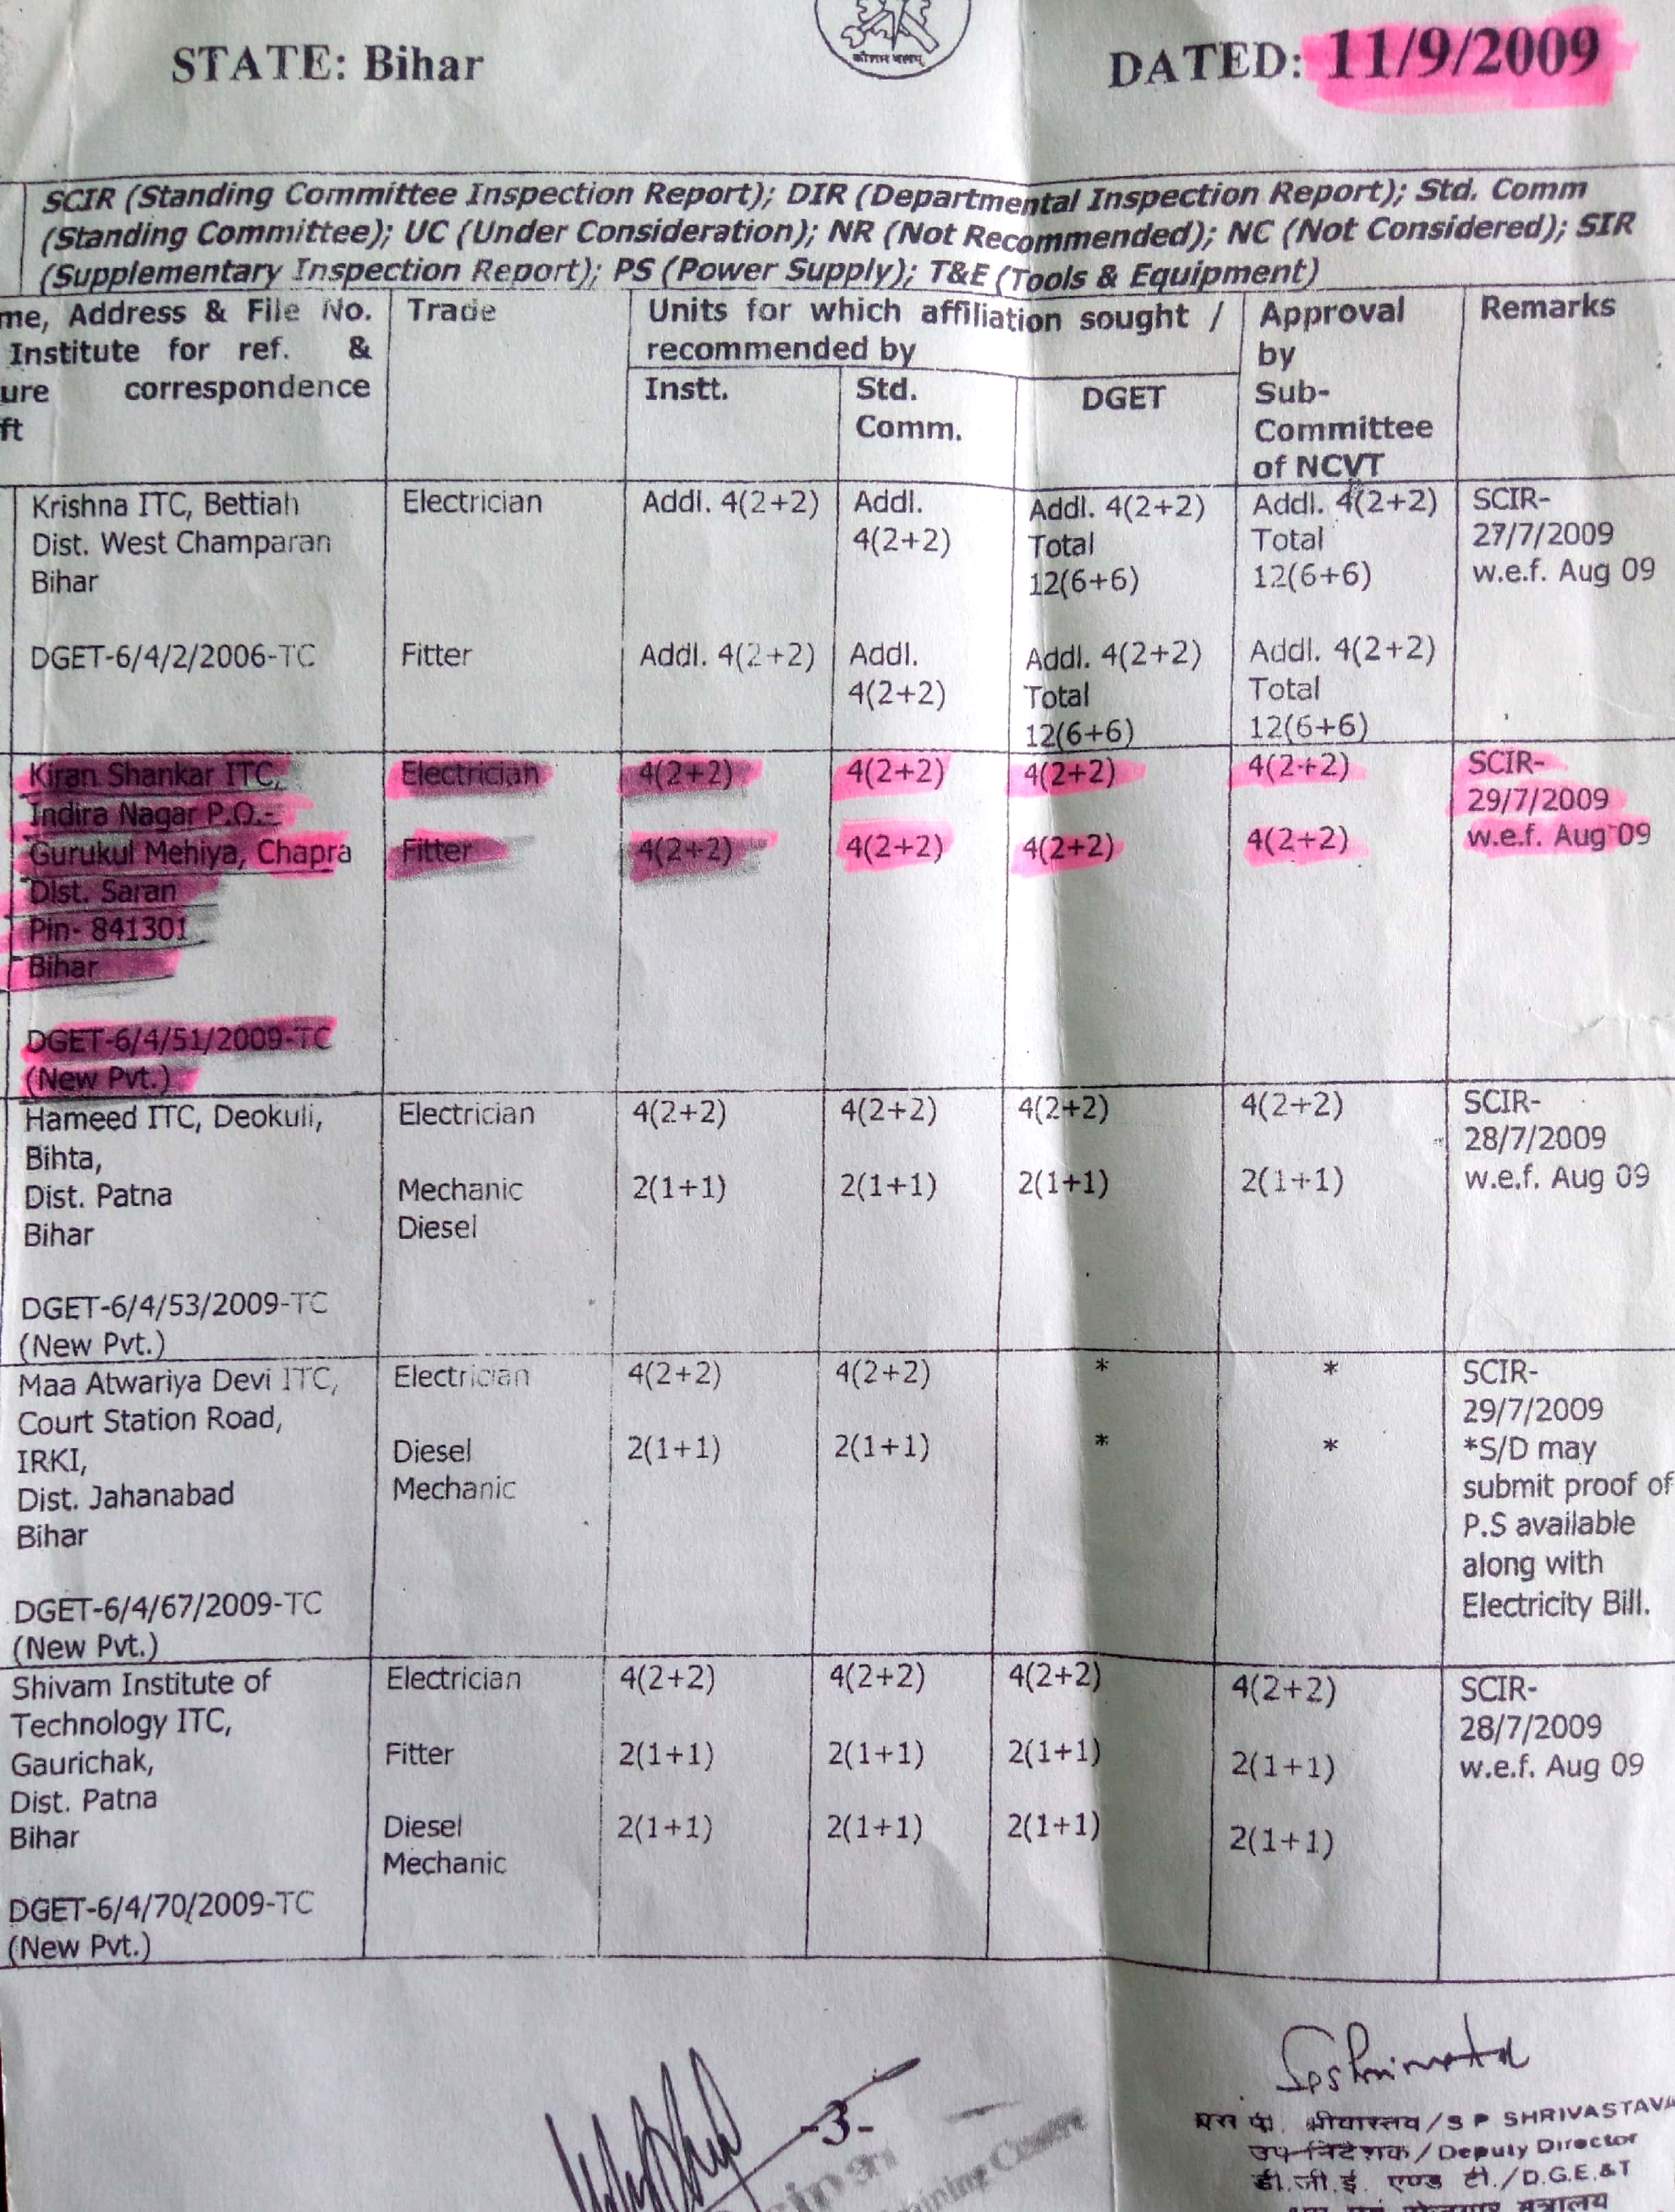 कौशलम् बलम्
STATE: Bihar
DATED: 11/9/2009
SCIR (Standing Committee Inspection Report); DIR (Departmental Inspection Report); Std. Comm
(Standing Committee); UC (Under Consideration); NR (Not Recommended); NC (Not Considered); SIR
(Supplementary Inspection Report); PS (Power Supply); T&E (Tools & Equipment)
me, Address & File No.
Institute for ref. &
ure correspondence
ft
Trade
Units for which affiliation sought /
recommended by
Instt.
Std.
Comm.
DGET
Approval
by
Sub-
Committee
of NCVT
Remarks
Krishna ITC, Bettiah
Dist. West Champaran
Bihar
DGET-6/4/2/2006-TC
Electrician
Addl. 4(2+2)
Addl.
4(2+2)
Addl. 4(2+2)
Total
12(6+6)
Addl. 4(2+2)
Total
12(6+6)
SCIR-
27/7/2009
w.e.f. Aug 09
Fitter
Addl. 4(2+2)
Addl.
4(2+2)
Addl. 4(2+2)
Total
12(6+6)
Addl. 4(2+2)
Total
12(6+6)
Kiran Shankar ITC,
Indira Nagar P.O.-
Gurukul Mehiya, Chapra
Dist. Saran
Pin- 841301
Bihar
DGET-6/4/51/2009-TC
(New Pvt.)
Electrician
4(2+2)
4(2+2)
4(2+2)
4(2+2)
SCIR-
29/7/2009
w.e.f. Aug 09
Fitter
4(2+2)
4(2+2)
4(2+2)
4(2+2)
Hameed ITC, Deokuli,
Bihta,
Dist. Patna
Bihar
DGET-6/4/53/2009-TC
(New Pvt.)
Electrician
4(2+2)
4(2+2)
4(2+2)
4(2+2)
SCIR-
28/7/2009
w.e.f. Aug 09
Mechanic
Diesel
2(1+1)
2(1+1)
2(1+1)
2(1+1)
Maa Atwariya Devi ITC,
Court Station Road,
IRKI,
Dist. Jahanabad
Bihar
DGET-6/4/67/2009-TC
(New Pvt.)
Electrician
4(2+2)
4(2+2)
*
*
SCIR-
29/7/2009
*S/D may
submit proof of
P.S available
along with
Electricity Bill.
Diesel
Mechanic
2(1+1)
2(1+1)
*
*
Shivam Institute of
Technology ITC,
Gaurichak,
Dist. Patna
Bihar
DGET-6/4/70/2009-TC
(New Pvt.)
Electrician
4(2+2)
4(2+2)
4(2+2)
4(2+2)
SCIR-
28/7/2009
w.e.f. Aug 09
Fitter
2(1+1)
2(1+1)
2(1+1)
2(1+1)
Diesel
Mechanic
2(1+1)
2(1+1)
2(1+1)
2(1+1)
-3-
एस पी. श्रीवास्तव/S P SHRIVASTAVA
उप निदेशक/Deputy Director
डी.जी.ई. एण्ड टी./D.G.E.&T